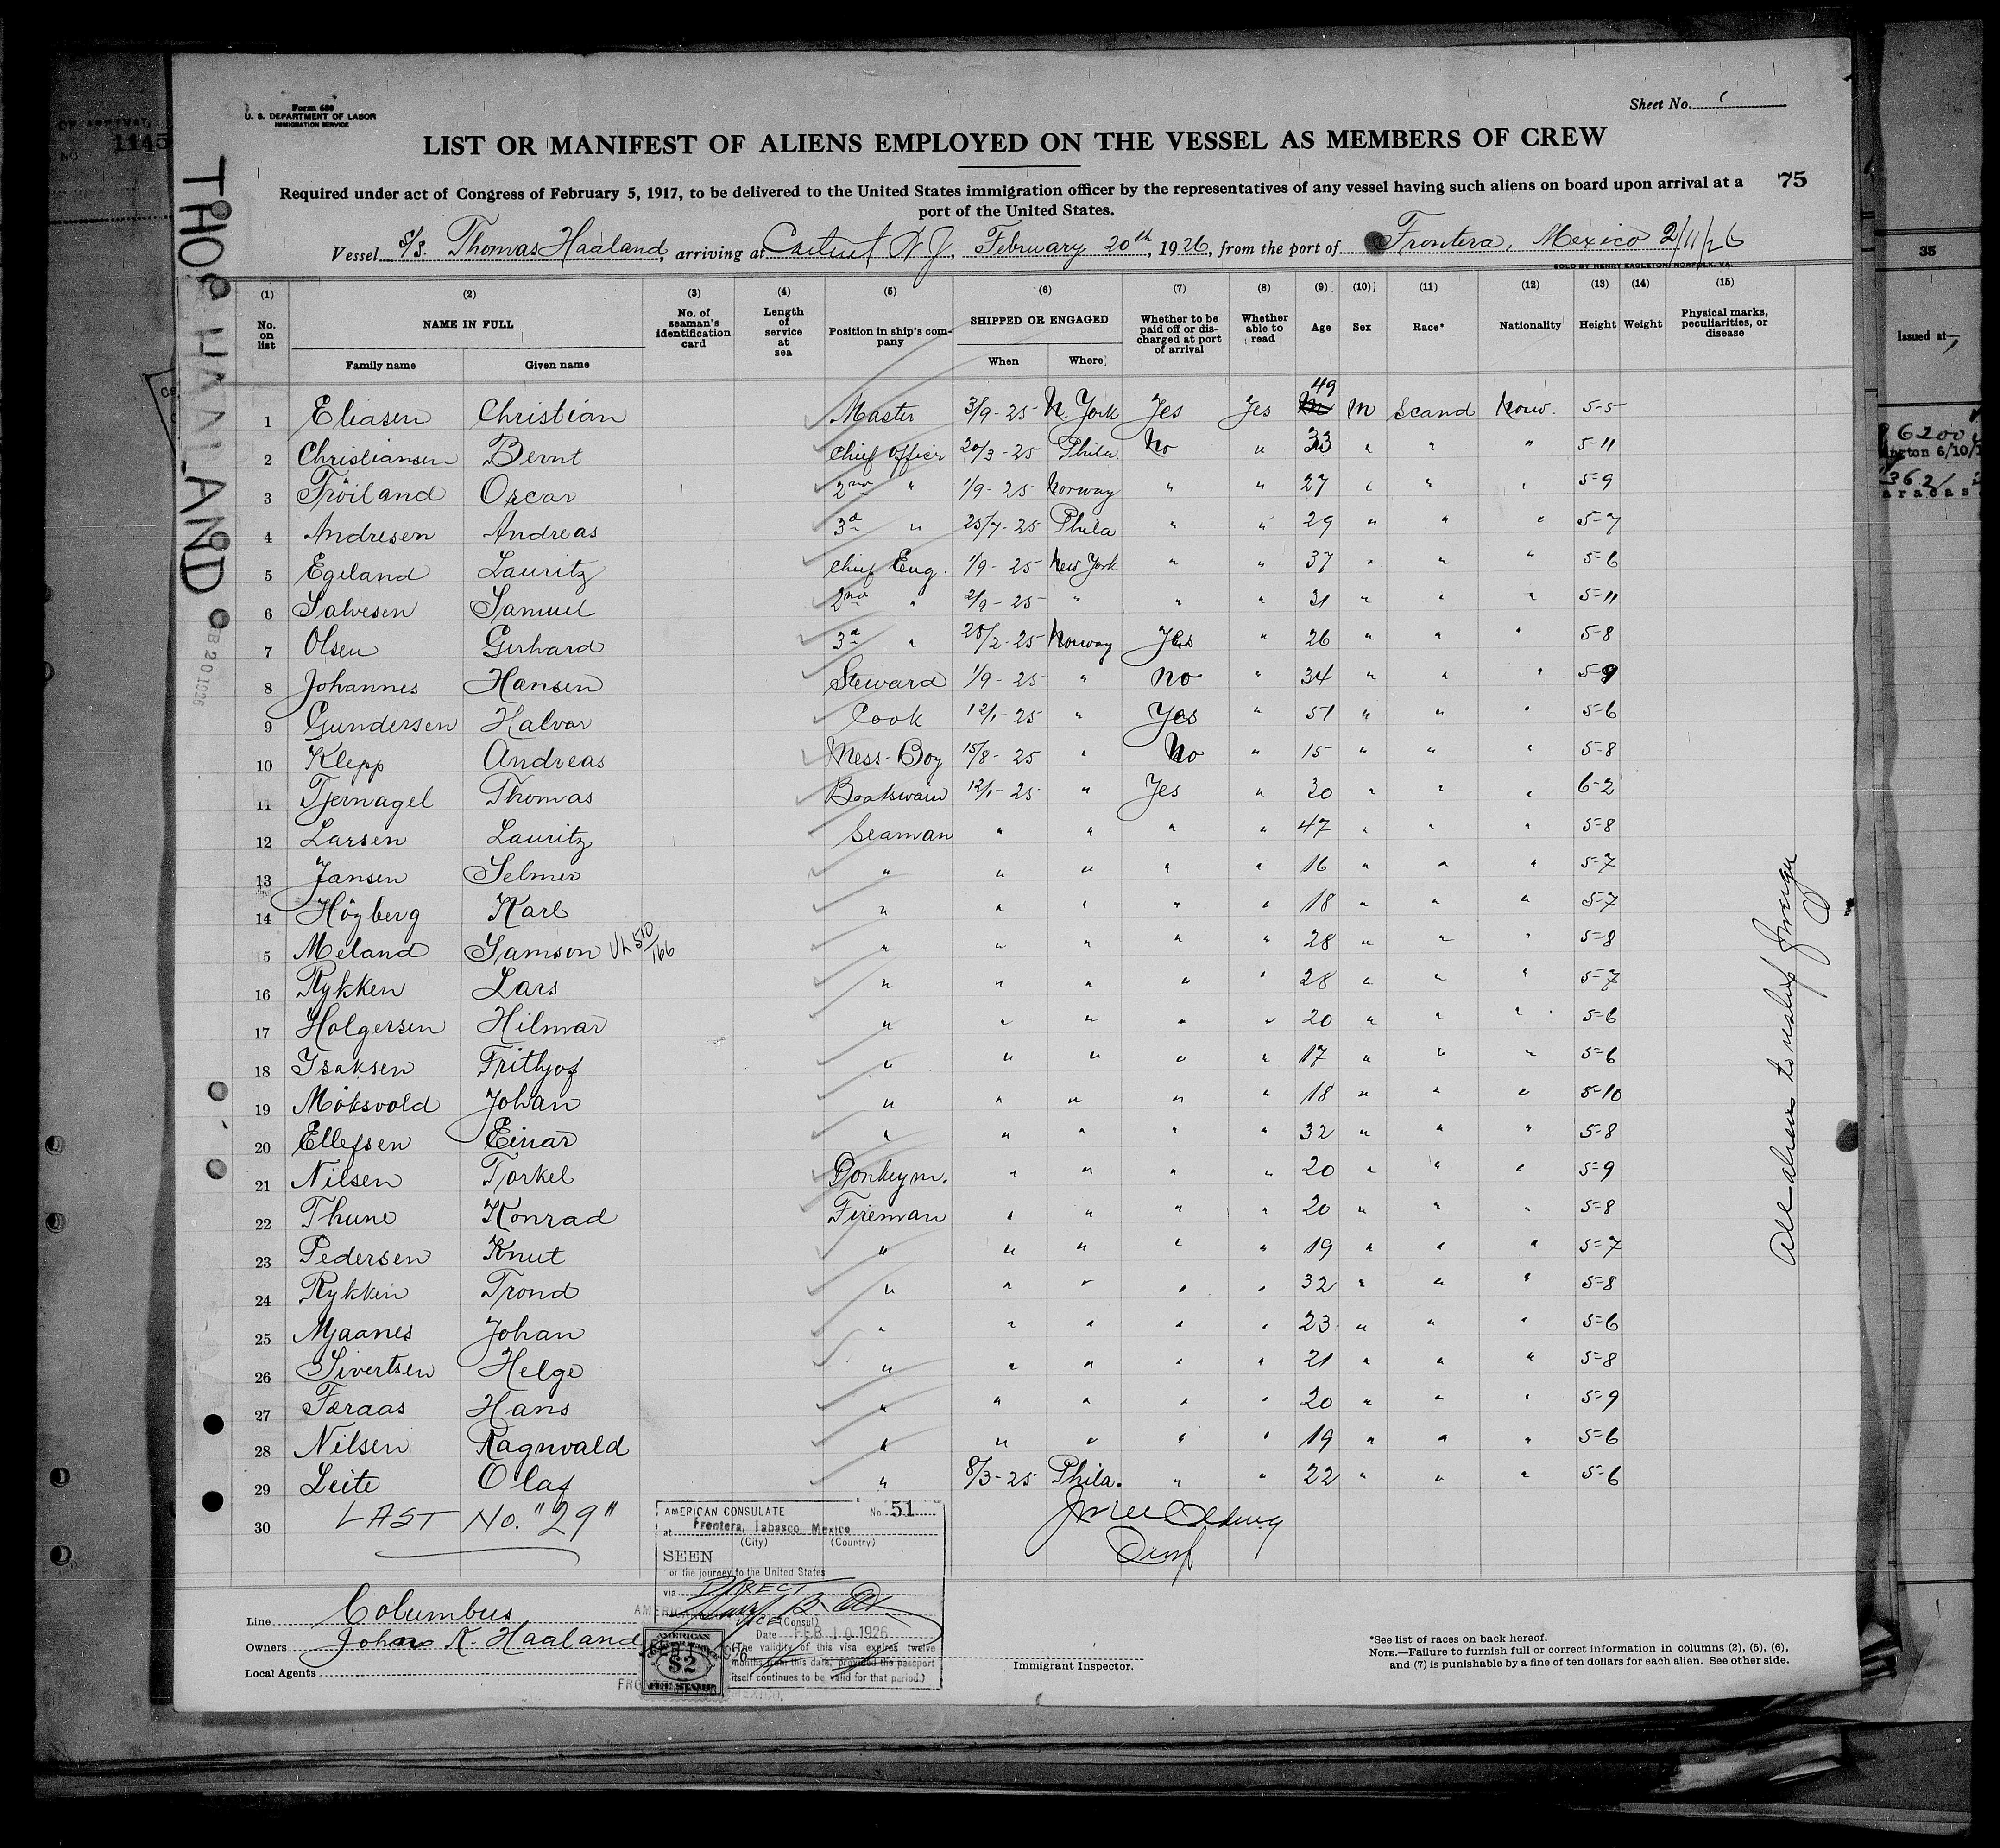 Form 680
U. S. DEPARTMENT OF LABOR
IMMIGRATION SERVICE
Sheet No. 1
LIST OR MANIFEST OF ALIENS EMPLOYED ON THE VESSEL AS MEMBERS OF CREW
Required under act of Congress of February 5, 1917, to be delivered to the United States immigration officer by the representatives of any vessel having such aliens on board upon arrival at a
port of the United States.
75
Vessel S/S. Thomas Haaland, arriving at Carteret N J., February 20th, 1926, from the port of Frontera, Mexico 2/11/26
SOLD BY HENRY EAGLETON, NORFOLK, VA.
(1) (2) (3) (4) (5) (6) (7) (8) (9) (10) (11) (12) (13) (14) (15)
No. on list NAME IN FULL Family name Given name No. of seaman's identification card Length of service at sea Position in ship's company SHIPPED OR ENGAGED When Where Whether to be paid off or discharged at port of arrival Whether able to read Age Sex Race* Nationality Height Weight Physical marks, peculiarities, or disease
1 Eliasen Christian Master 3/9-25 N. York Yes Yes 49 M Scand Norw. 5-5
2 Christiansen Bernt Chief Officer 20/3-25 Phila. No " 33 " " " 5-11
3 Fröiland Oscar 2nd " 1/9-25 Norway " " 27 " " " 5-9
4 Andresen Andreas 3d " 25/7-25 Phila " " 29 " " " 5-7
5 Egeland Lauritz Chief Eng. 1/9-25 New York " " 37 " " " 5-6
6 Salvesen Samuel 2nd " 2/9-25 " " " 31 " " " 5-11
7 Olsen Gerhard 3d " 28/2-25 Norway Yes " 26 " " " 5-8
8 Johannes Hansen Steward 1/9-25 " No " 34 " " " 5-9
9 Gundersen Halvor Cook 12/1-25 " Yes " 51 " " " 5-6
10 Klepp Andreas Mess-Boy 15/8-25 " No " 15 " " " 5-8
11 Tjernagel Thomas Boatswain 12/1-25 " Yes " 30 " " " 6-2
12 Larsen Lauritz Seaman " " " " 47 " " " 5-8
13 Jansen Selmer " " " " " 16 " " " 5-7
14 Högberg Karl " " " " " 18 " " " 5-7
15 Meland Samson VL 510/166 " " " " " 28 " " " 5-8
16 Rykken Lars " " " " " 28 " " " 5-7
17 Holgersen Hilmar " " " " " 20 " " " 5-6
18 Isaksen Frithjof " " " " " 17 " " " 5-6
19 Möksvold Johan " " " " " 18 " " " 5-10
20 Ellefsen Einar " " " " " 32 " " " 5-8
21 Nilsen Torkel Donkeym. " " " " 20 " " " 5-9
22 Thune Konrad Fireman " " " " 20 " " " 5-8
23 Pedersen Knut " " " " " 19 " " " 5-7
24 Rykken Trond " " " " " 32 " " " 5-8
25 Mjaanes Johan " " " " " 23 " " " 5-6
26 Sivertsen Helge " " " " " 21 " " " 5-8
27 Færaas Hans " " " " " 20 " " " 5-9
28 Nilsen Ragnvald " " " " " 19 " " " 5-6
29 Leite Olaf " 8/3-25 Phila. " " 22 " " " 5-6
30 LAST No. "29"
All aliens to
AMERICAN CONSULATE No. 51
at Frontera, Tabasco, Mexico
(City) (Country)
SEEN
or the journey to the United States
via DIRECT
VICE (Consul)
Date FEB 10 1926
(The validity of this visa expires twelve
months from this date, provided the passport
itself continues to be valid for that period.)
AMERICAN
$2
FEE STAMP
MEXICO.
Line Columbus
Owners Johans K. Haaland
Local Agents
Immigrant Inspector.
*See list of races on back hereof.
NOTE.—Failure to furnish full or correct information in columns (2), (5), (6),
and (7) is punishable by a fine of ten dollars for each alien. See other side.
THOS HAALAND
FEB 20 1926
1145
35
Issued at
6200
6/10/
362
aracas